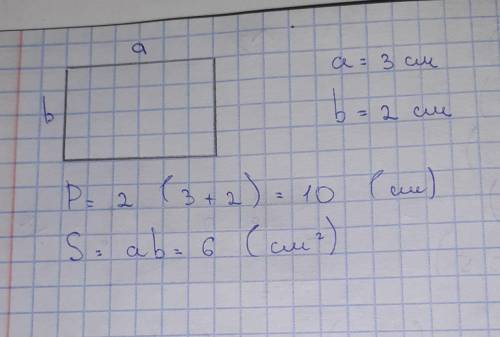 a
b
a = 3 см
b = 2 см
P = 2 (3 + 2) = 10 (см)
S = ab = 6 (см²)